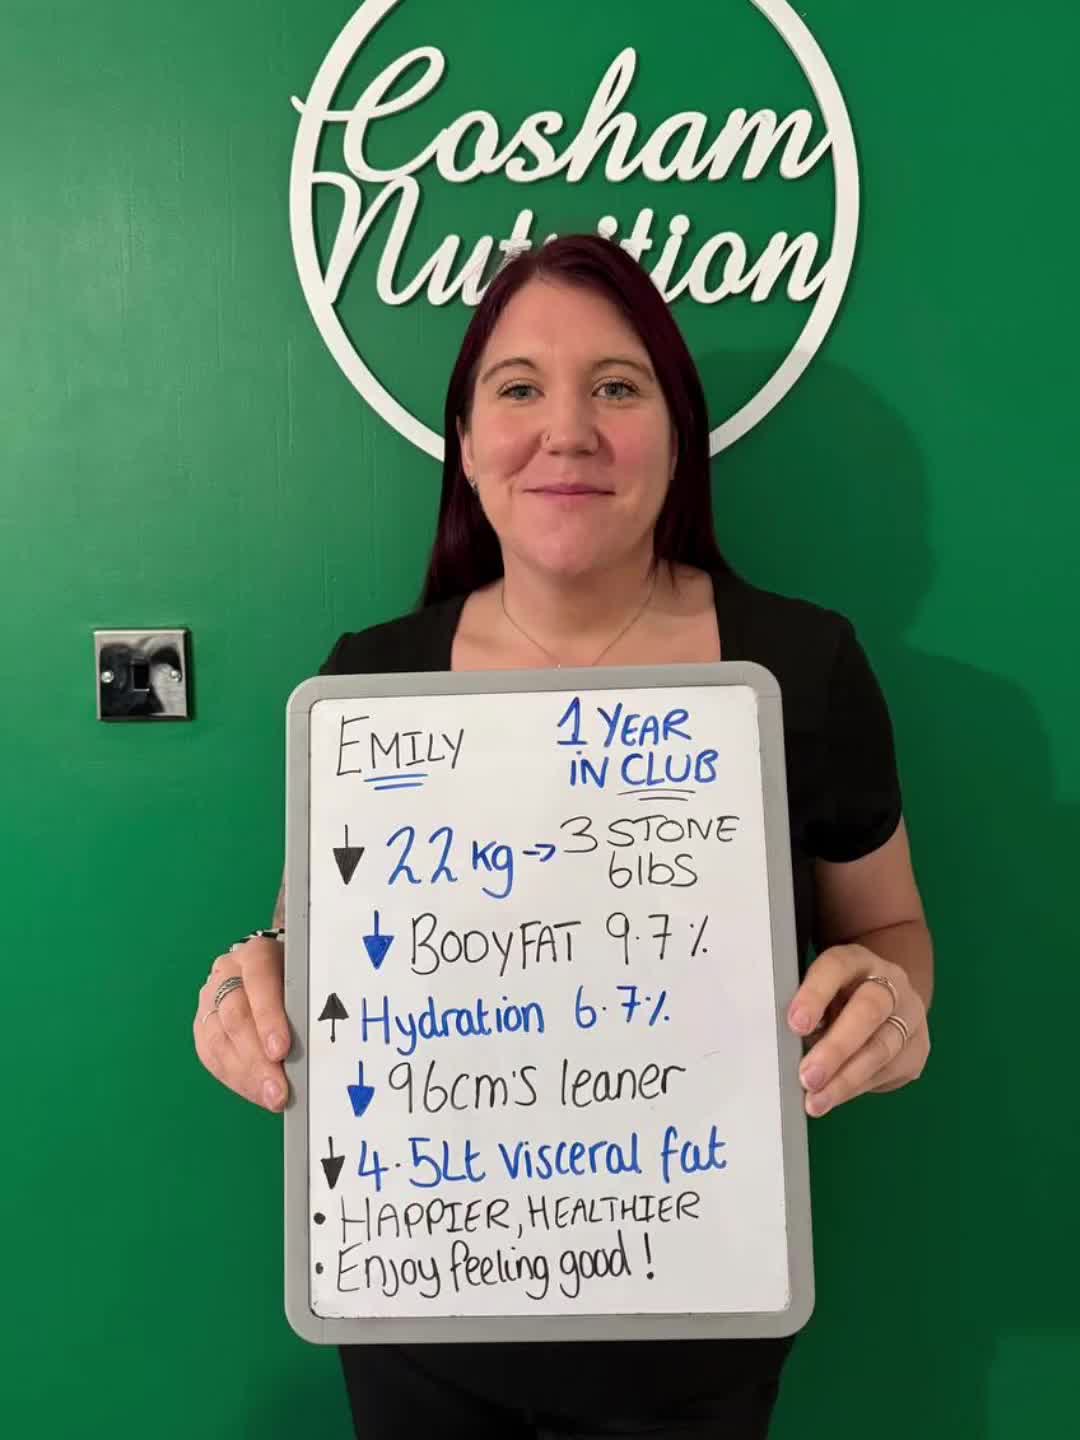 Cosham
Nutrition
EMILY
1 YEAR
IN CLUB
↓ 22kg → 3 STONE
6lbs
↓ BODYFAT 9.7%
↑ Hydration 6.7%
↓ 96cm's leaner
↓ 4.5Lt visceral fat
• HAPPIER, HEALTHIER
• Enjoy feeling good!